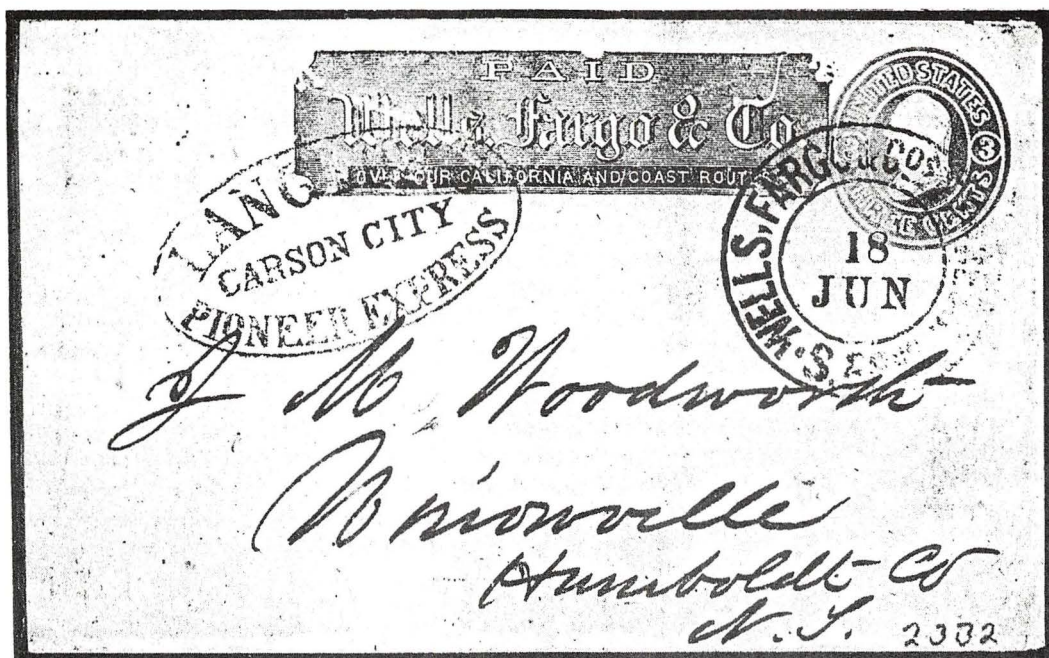 PAID
Wells, Fargo & Co.
OVER OUR CALIFORNIA AND COAST ROUTES
UNITED STATES
3
THREE CENTS
CARSON CITY
PIONEER EXPRESS
WELLS, FARGO & CO.
18
JUN
J M Woodworth
Unionville
Humboldt Co
N. T.
2332